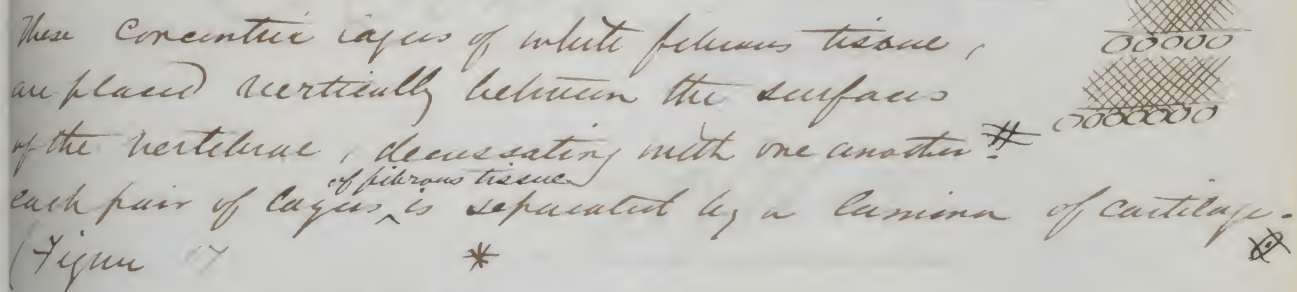 These Concentric layers of white fibrous tissue,
are placed vertically between the surfaces
of the vertebrae, decussating with one another. #
of fibrous tissue
each pair of layers ^ is separated by a lamina of cartilage.
(Figure *